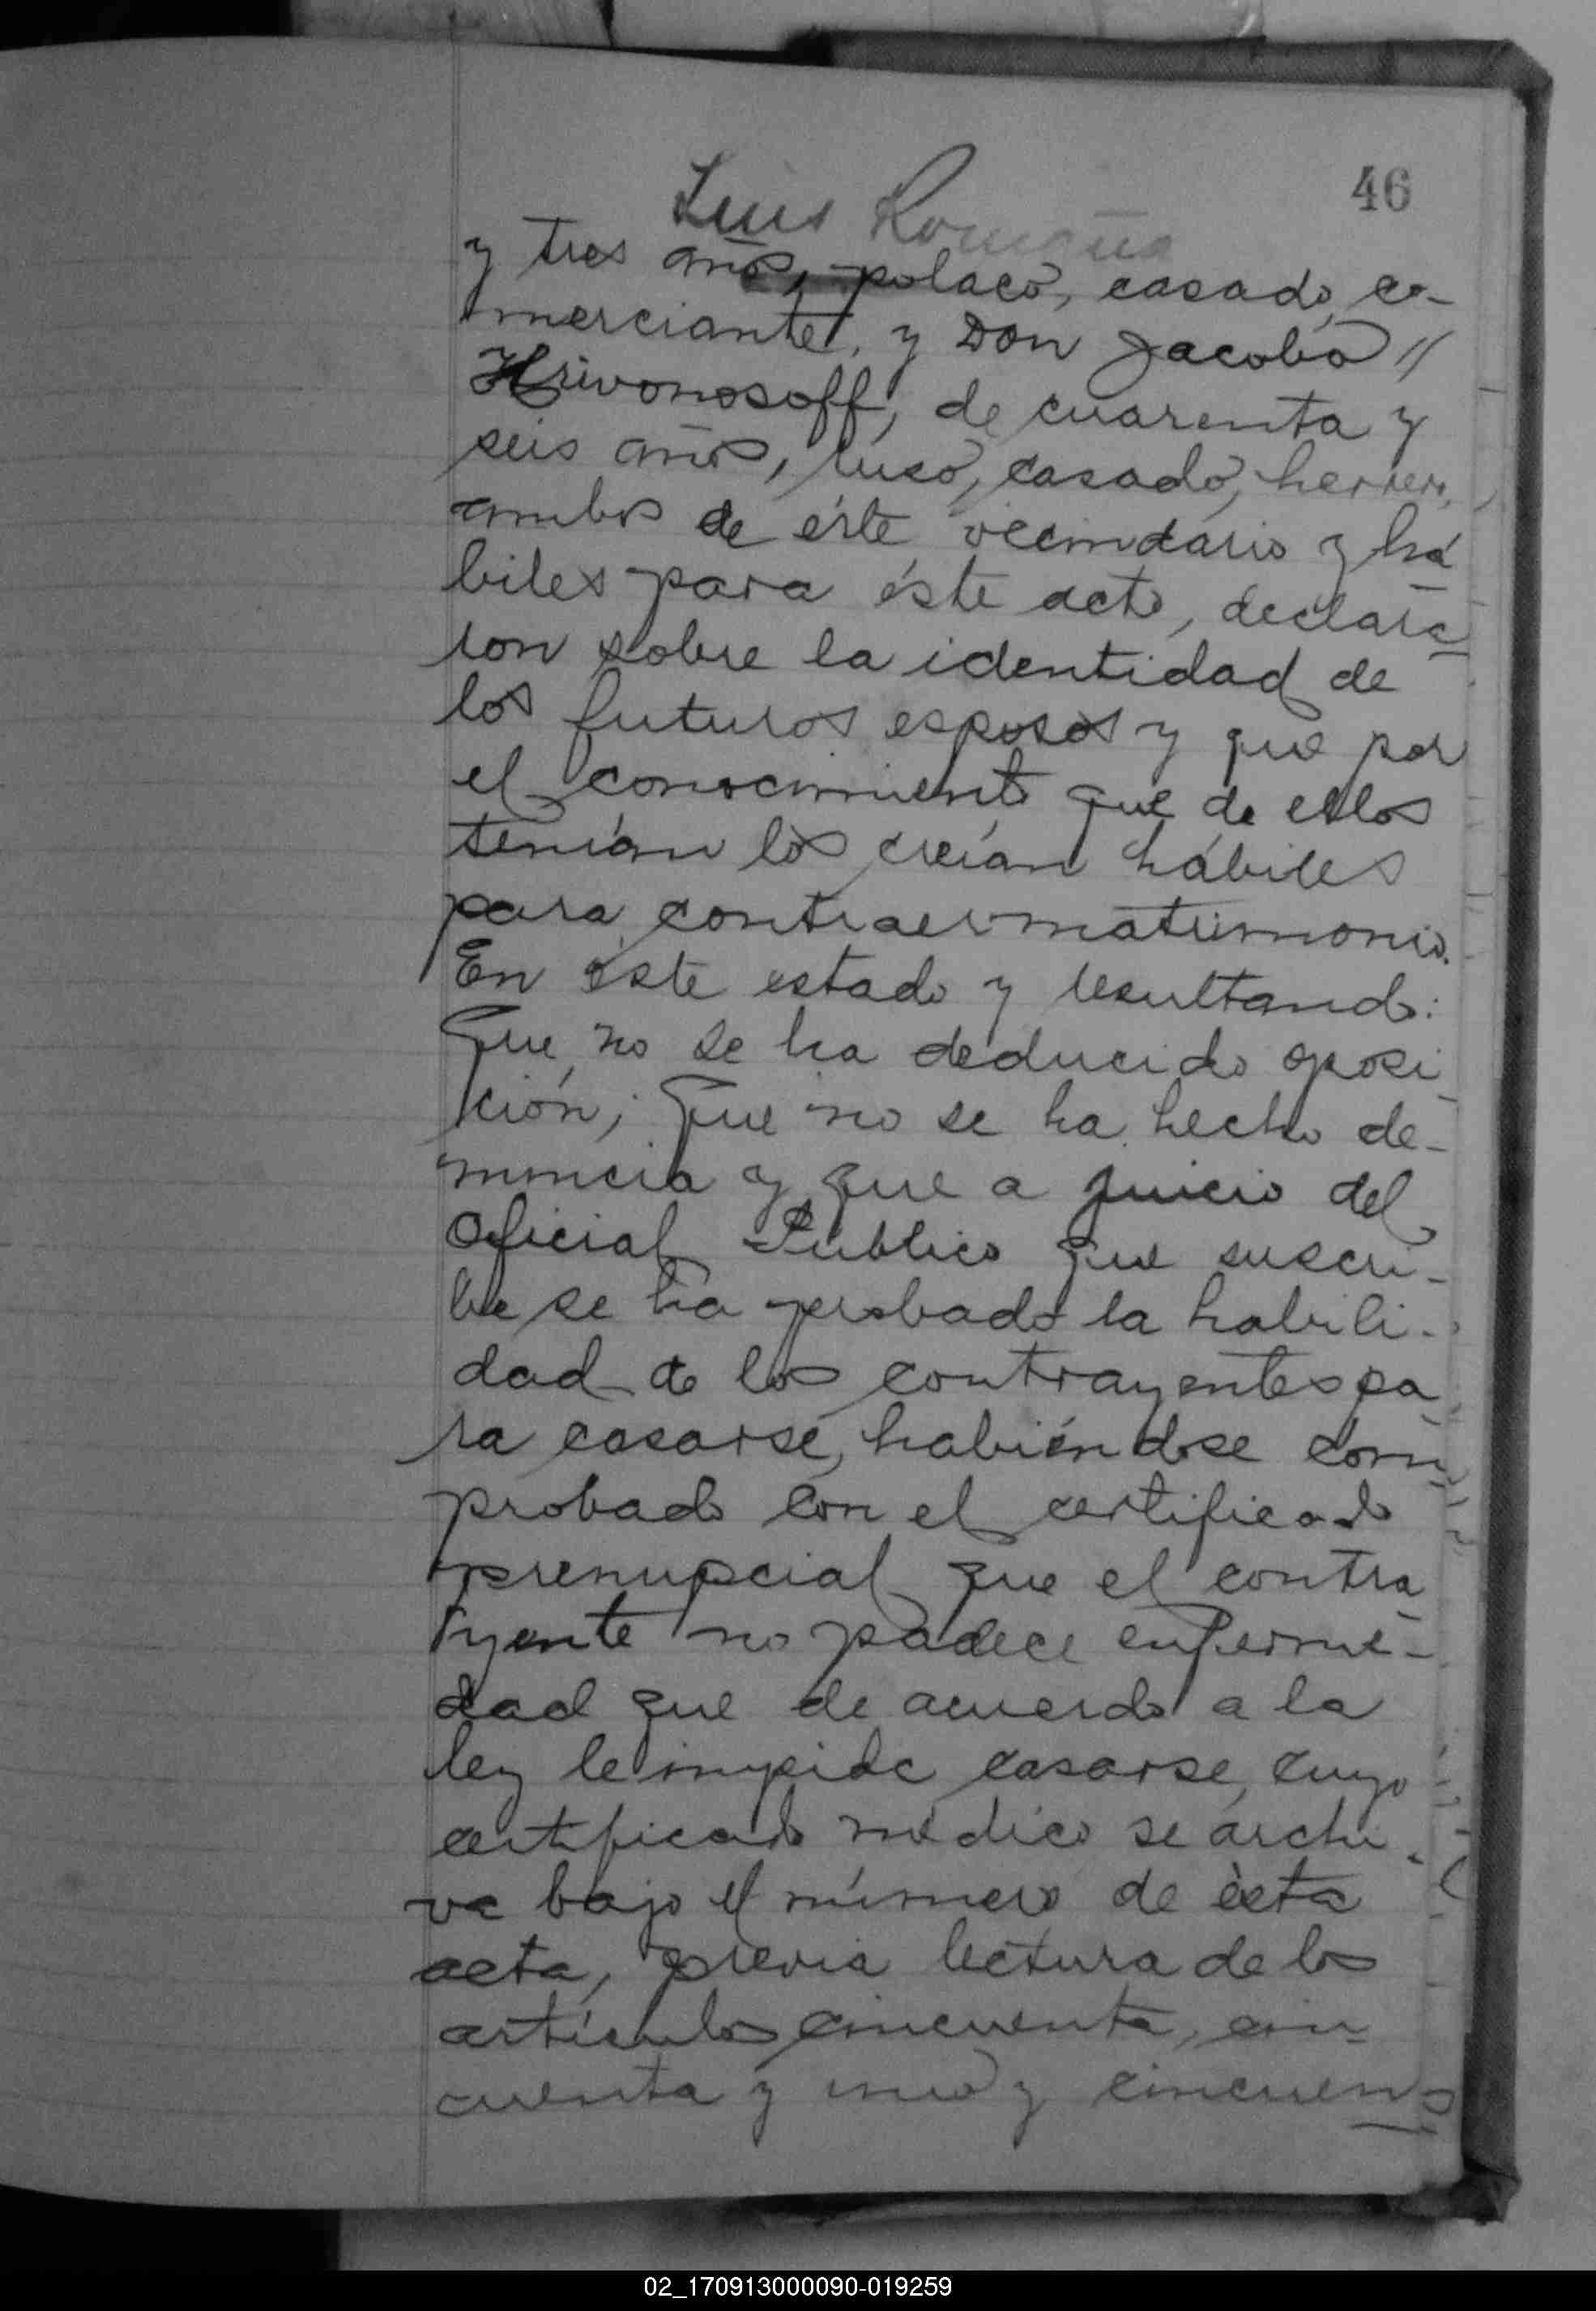 46
Luis Romagña
y tres años, polaco, casado, co-
merciante, y Don Jacobo //
Hrivonosoff, de cuarenta y
seis años, ruso, casado, herrero,
ambos de éste vecindario y há
biles para éste acto, declara
ron sobre la identidad de
los futuros esposos y que por
el conocimiento que de ellos
tenían los creían hábiles
para contraer matrimonio.
En éste estado y resultando:
Que no se ha deducido oposi
ción; Que no se ha hecho de-
nuncia y que a juicio del
Oficial Público que suscri-
be se ha probado la habili-
dad de los contrayentes pa
ra casarse, habiéndose com
probado con el certificado
prenupcial que el contra
yente no padece enferme-
dad que de acuerdo a la
ley le impida casarse, cuyo
certificado médico se archi-
va bajo el número de ésta
acta, previa lectura de los
artículos cincuenta, cin-
cuenta y uno y cincuen
02_170913000090-019259